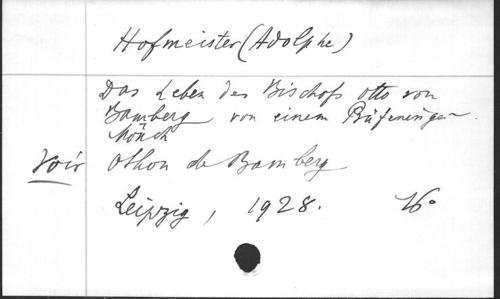 Hofmeister (Adolphe)
Das Leben des Bischofs Otto von
Bamberg von einem Prüfeninger
Mönch
Voir Othon de Bamberg
Leipzig, 1928. 16°